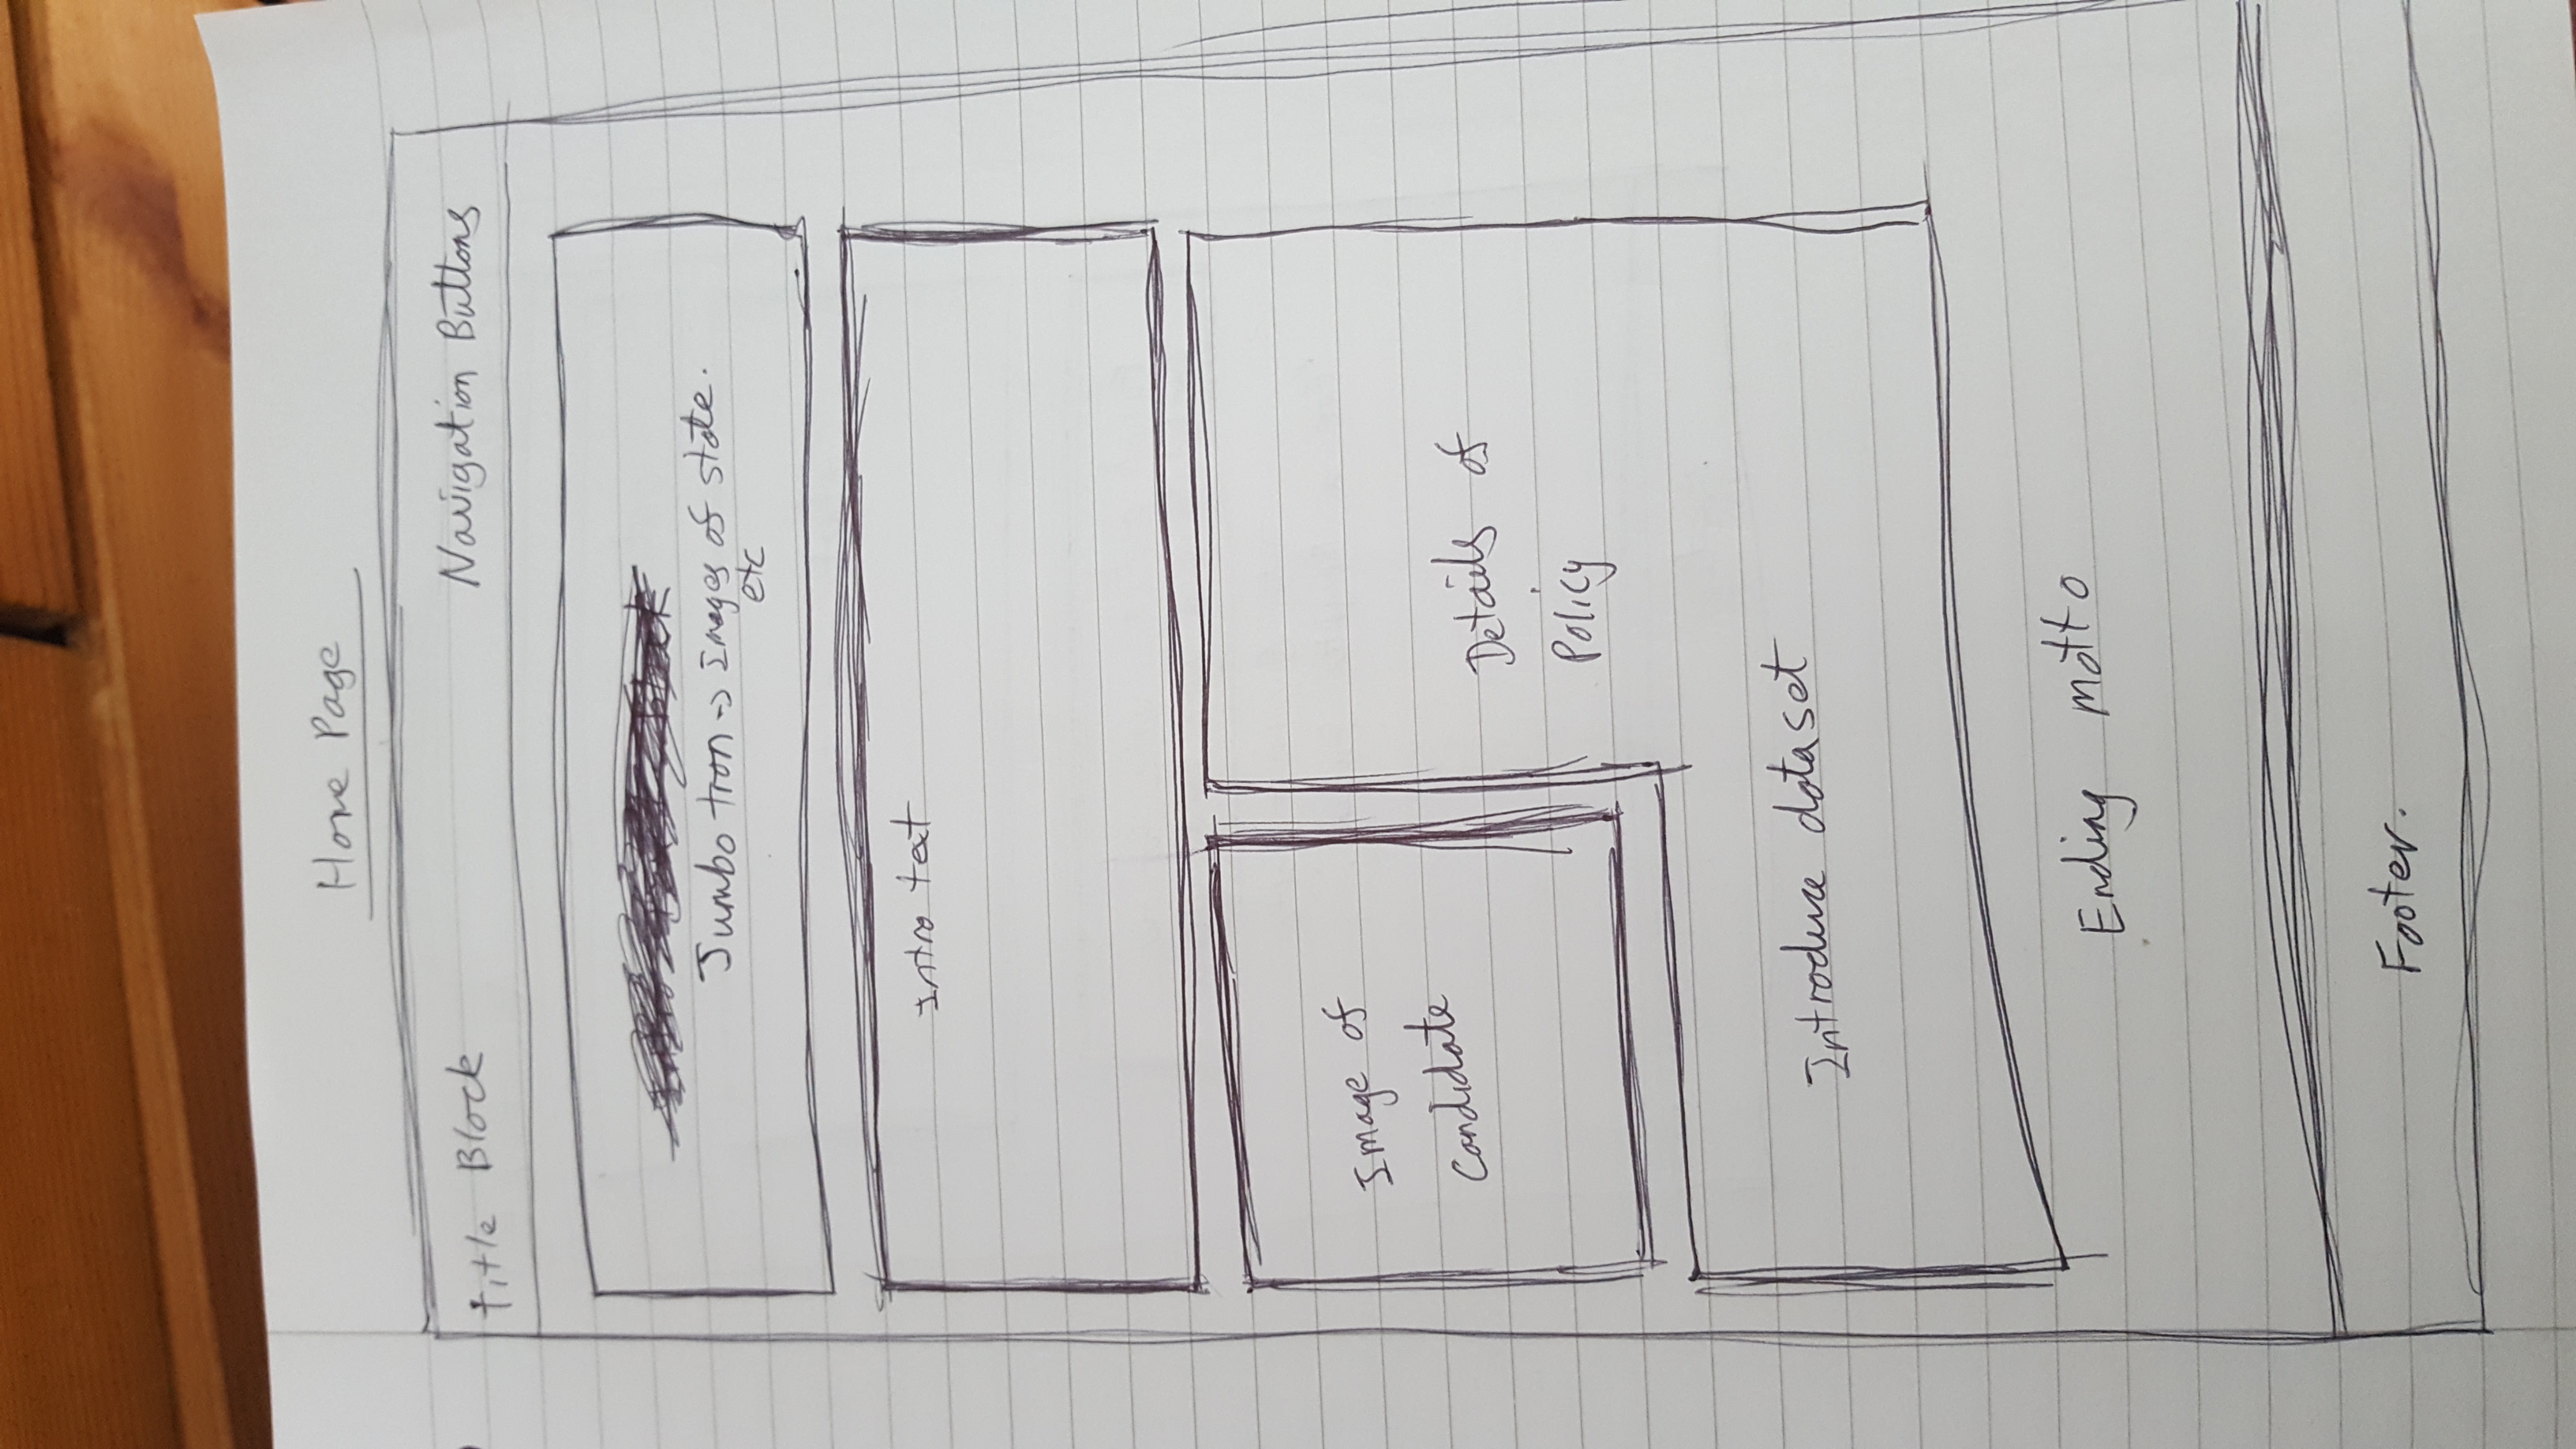 Home Page
Title Block
Navigation Buttons
Jumbotron -> Images of state.
etc
Intro text
Image of
Candidate
Details of
Policy
Introduce dataset
Ending motto
Footer.